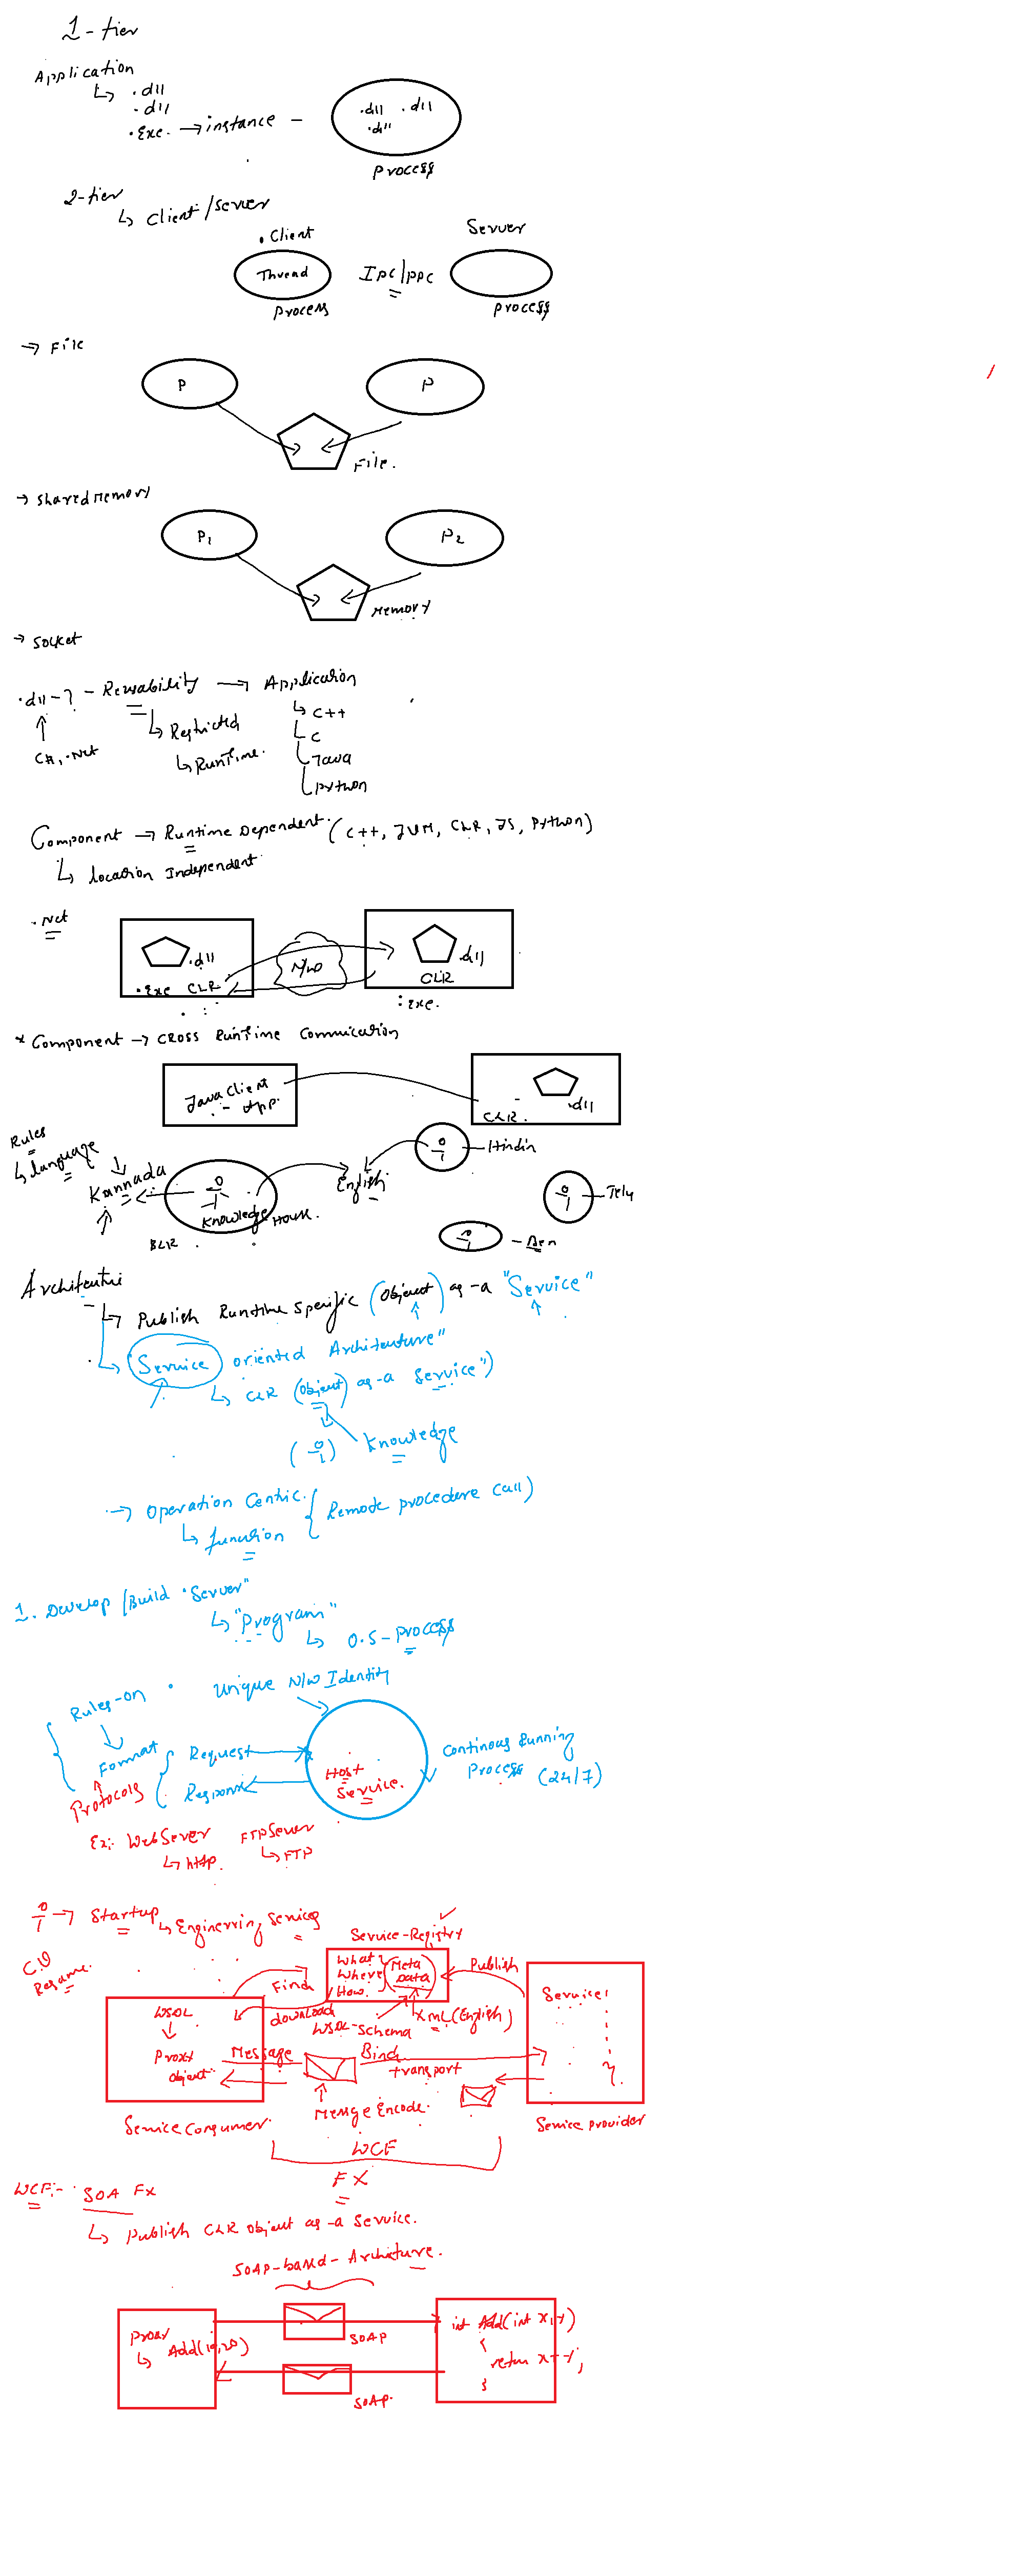 1-tier
Application
↳ .dll
.dll
.Exe. → instance -
.dll .dll
.dll
process
2-tier
↳ Client/server
.Client
Server
Thread
Ipc/ppc
process
process
→ File
P
P
File.
→ shared memory
P1
P2
Memory
→ socket
.dll-? - Reusability → Application
↳ Restricted
↳ Runtime.
C++
C
Java
python
C#, .Net
Component → Runtime Dependent. (C++, JVM, CLR, JS, Python)
↳ location Independent
.Net
.dll
.Exe CLR
N/W
.dll
CLR
:exe.
* Component → CROSS Runtime Commication
Java Client
App.
.dll
CLR.
Rules
↳ language
Kannada
Knowledge
House.
BLR
English
Hindin
Telu
Ben
↳ Publish Runtime Specific (object) as-a "Service"
↳ Service oriented Architenture"
↳ CLR (object) as-a Service")
Knowledge
→ operation Centric. { Remote procedure Call)
↳ function
1. Develop/Build "Server"
↳ "Program"
↳ O.S-process
Rules-on
unique N/W Identity
Format
Request
Response
Protocols
Host
Service.
Continous Running
Process (24/7)
Ex:- WebServer
↳ http.
FTPServer
↳ FTP
→ Startup ↳ Enginerring Services
C.V
Resume.
Service-Registry
What
Where
How.
(Meta
Data)
Find
Publish
download
WSDL-Schema
XML(English)
WSDL
Proxy
object
Message
Bind
transport
Messge Encode.
Service:
Service Consumer.
Service provider
WCF
FX
WCF:- SOA FX
↳ publish CLR object as-a Service.
SOAP-based-Architure.
Proxy
↳ Add(10,20)
SOAP
SOAP.
int Add(int x,y)
{
return x+y;
}